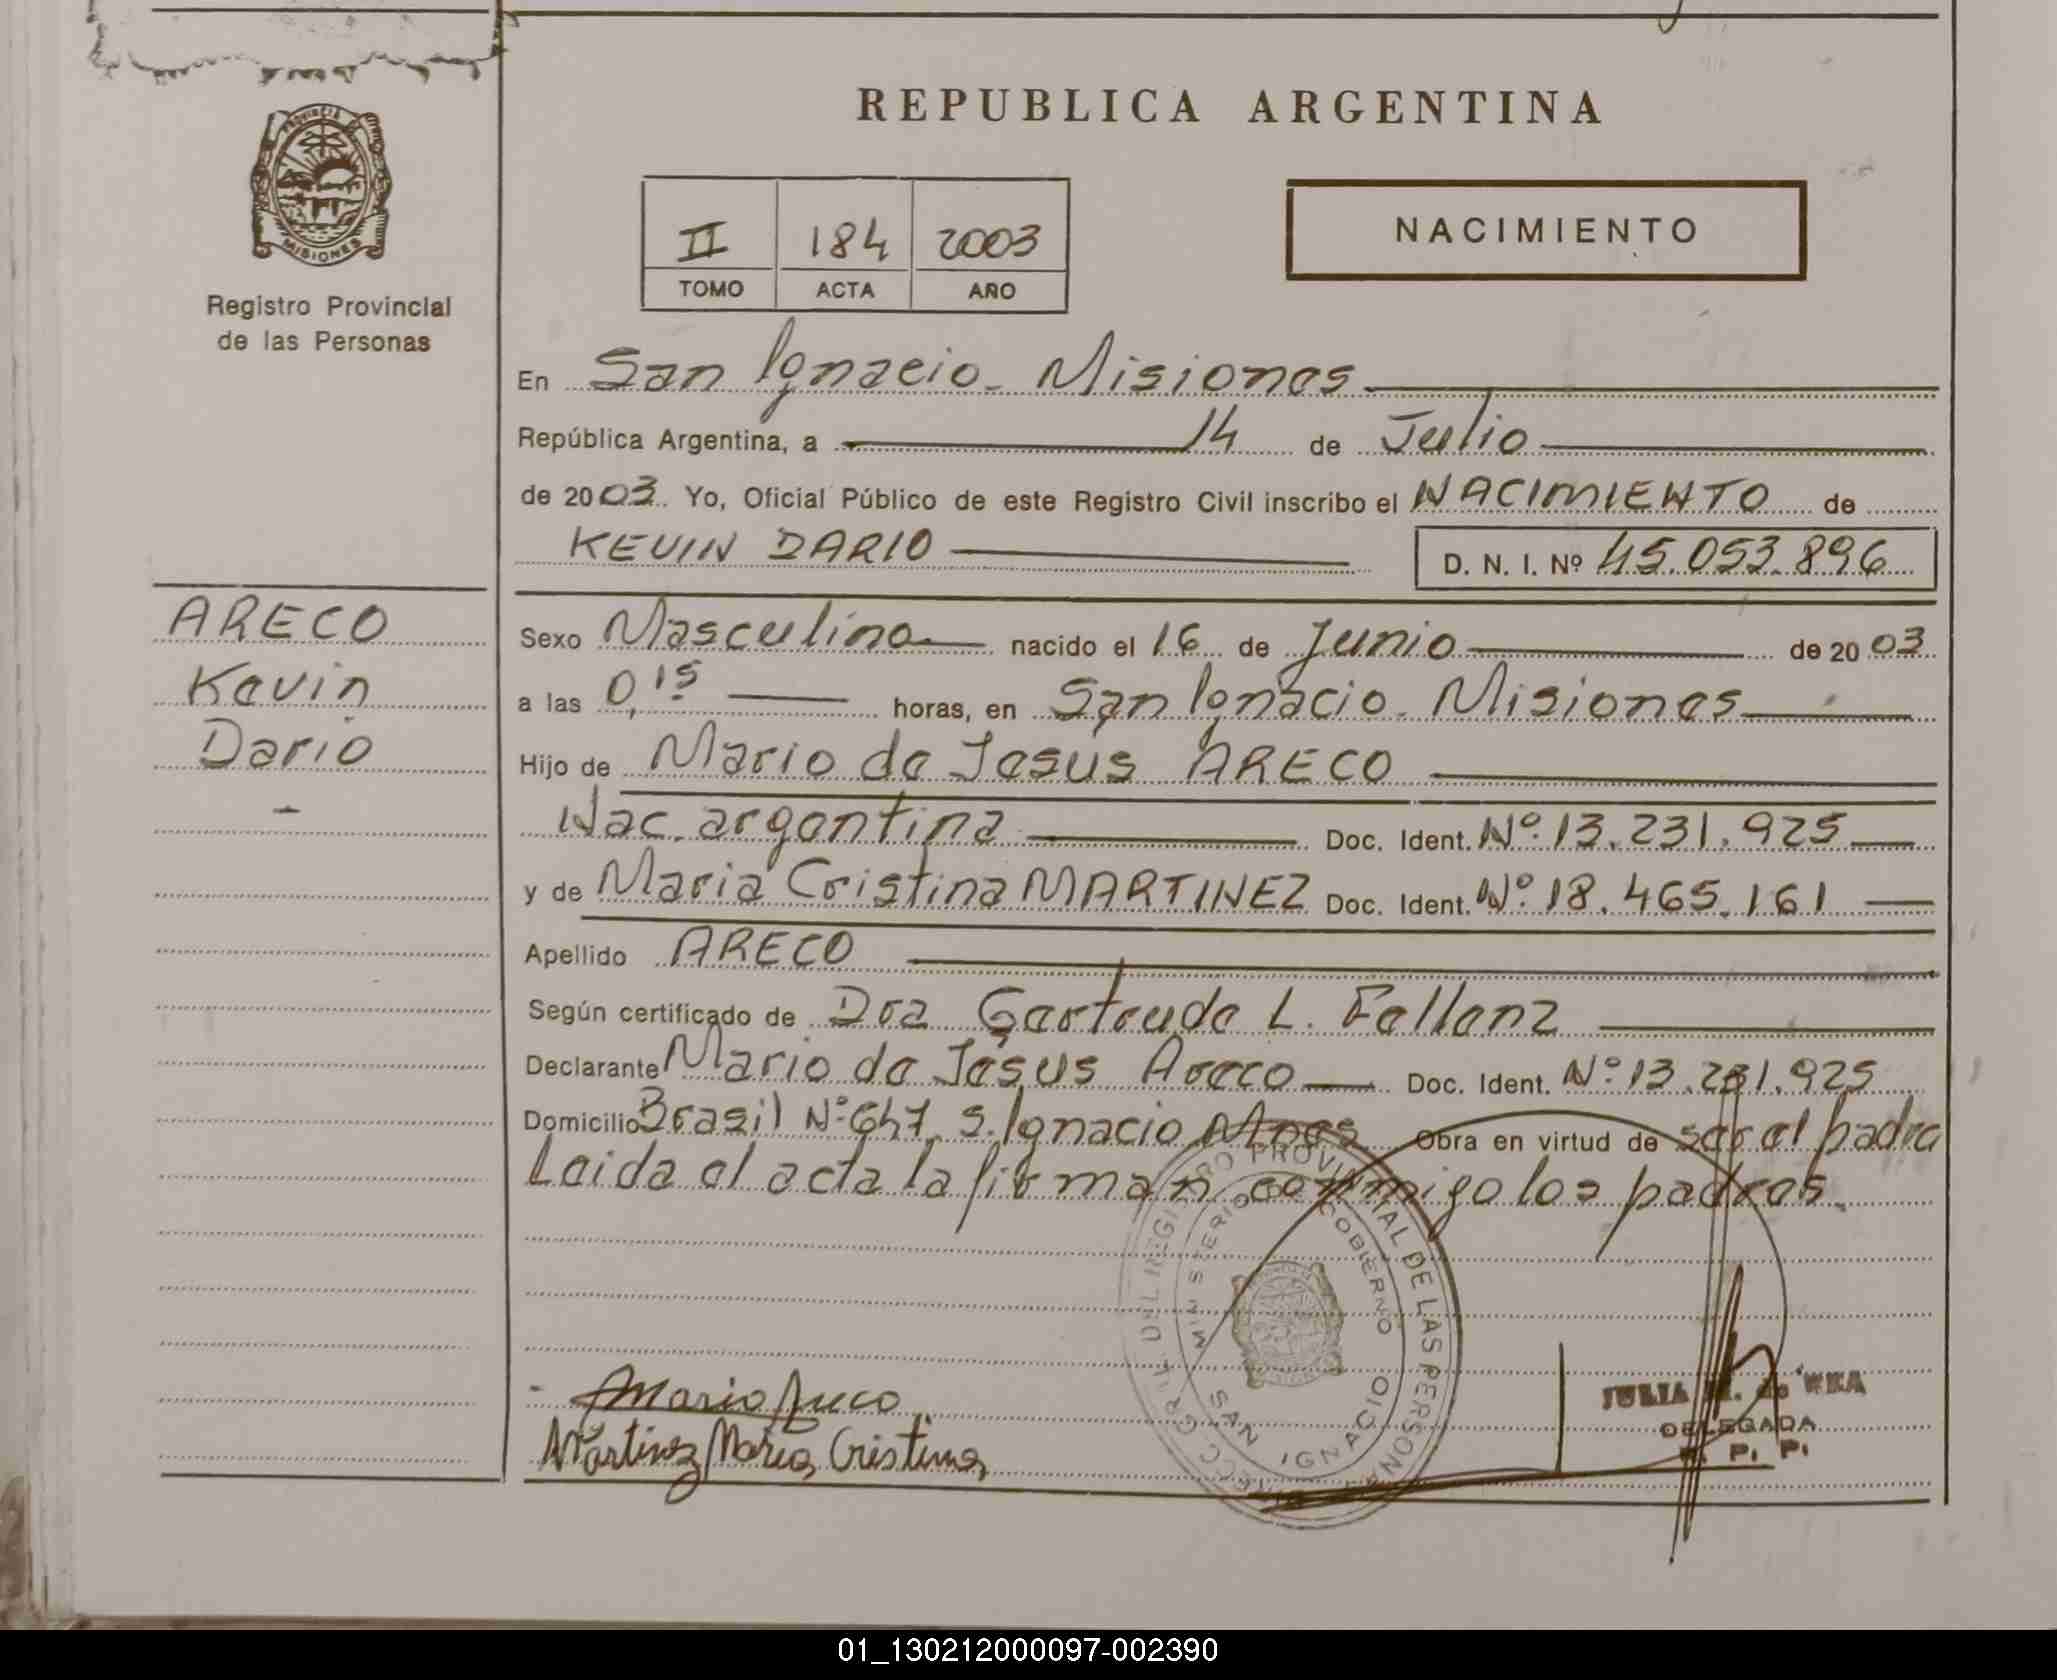 REPUBLICA ARGENTINA
PROVINCIA DE
MISIONES
Registro Provincial
de las Personas
II 184 2003
TOMO ACTA AÑO
NACIMIENTO
En San Ignacio - Misiones
República Argentina, a 14 de Julio
de 2003. Yo, Oficial Público de este Registro Civil inscribo el NACIMIENTO de
KEVIN DARIO D. N. I. Nº 45.053.896
ARECO
Kevin
Dario
-
Sexo Masculino nacido el 16 de Junio de 2003
a las 0,15 horas, en San Ignacio - Misiones
Hijo de Mario de Jesus ARECO
Nac. argentina Doc. Ident. Nº 13.231.925
y de Maria Cristina MARTINEZ Doc. Ident. Nº 18.465.161
Apellido ARECO
Según certificado de Dra Gertrude L. Fallenz
Declarante Mario de Jesus Areco Doc. Ident. Nº 13.231.925
Domicilio Brasil Nº 647, S. Ignacio Mnes Obra en virtud de ser el padre
Leida el acta la firman conmigo los padres.
DIRECC GRAL DEL REGISTRO PROVINCIAL DE LAS PERSONAS
MINISTERIO DE GOBIERNO
SAN IGNACIO
Mario Areco
Martinez Maria Cristina
JULIA
DELEGADA
R. P. P.
01_130212000097-002390